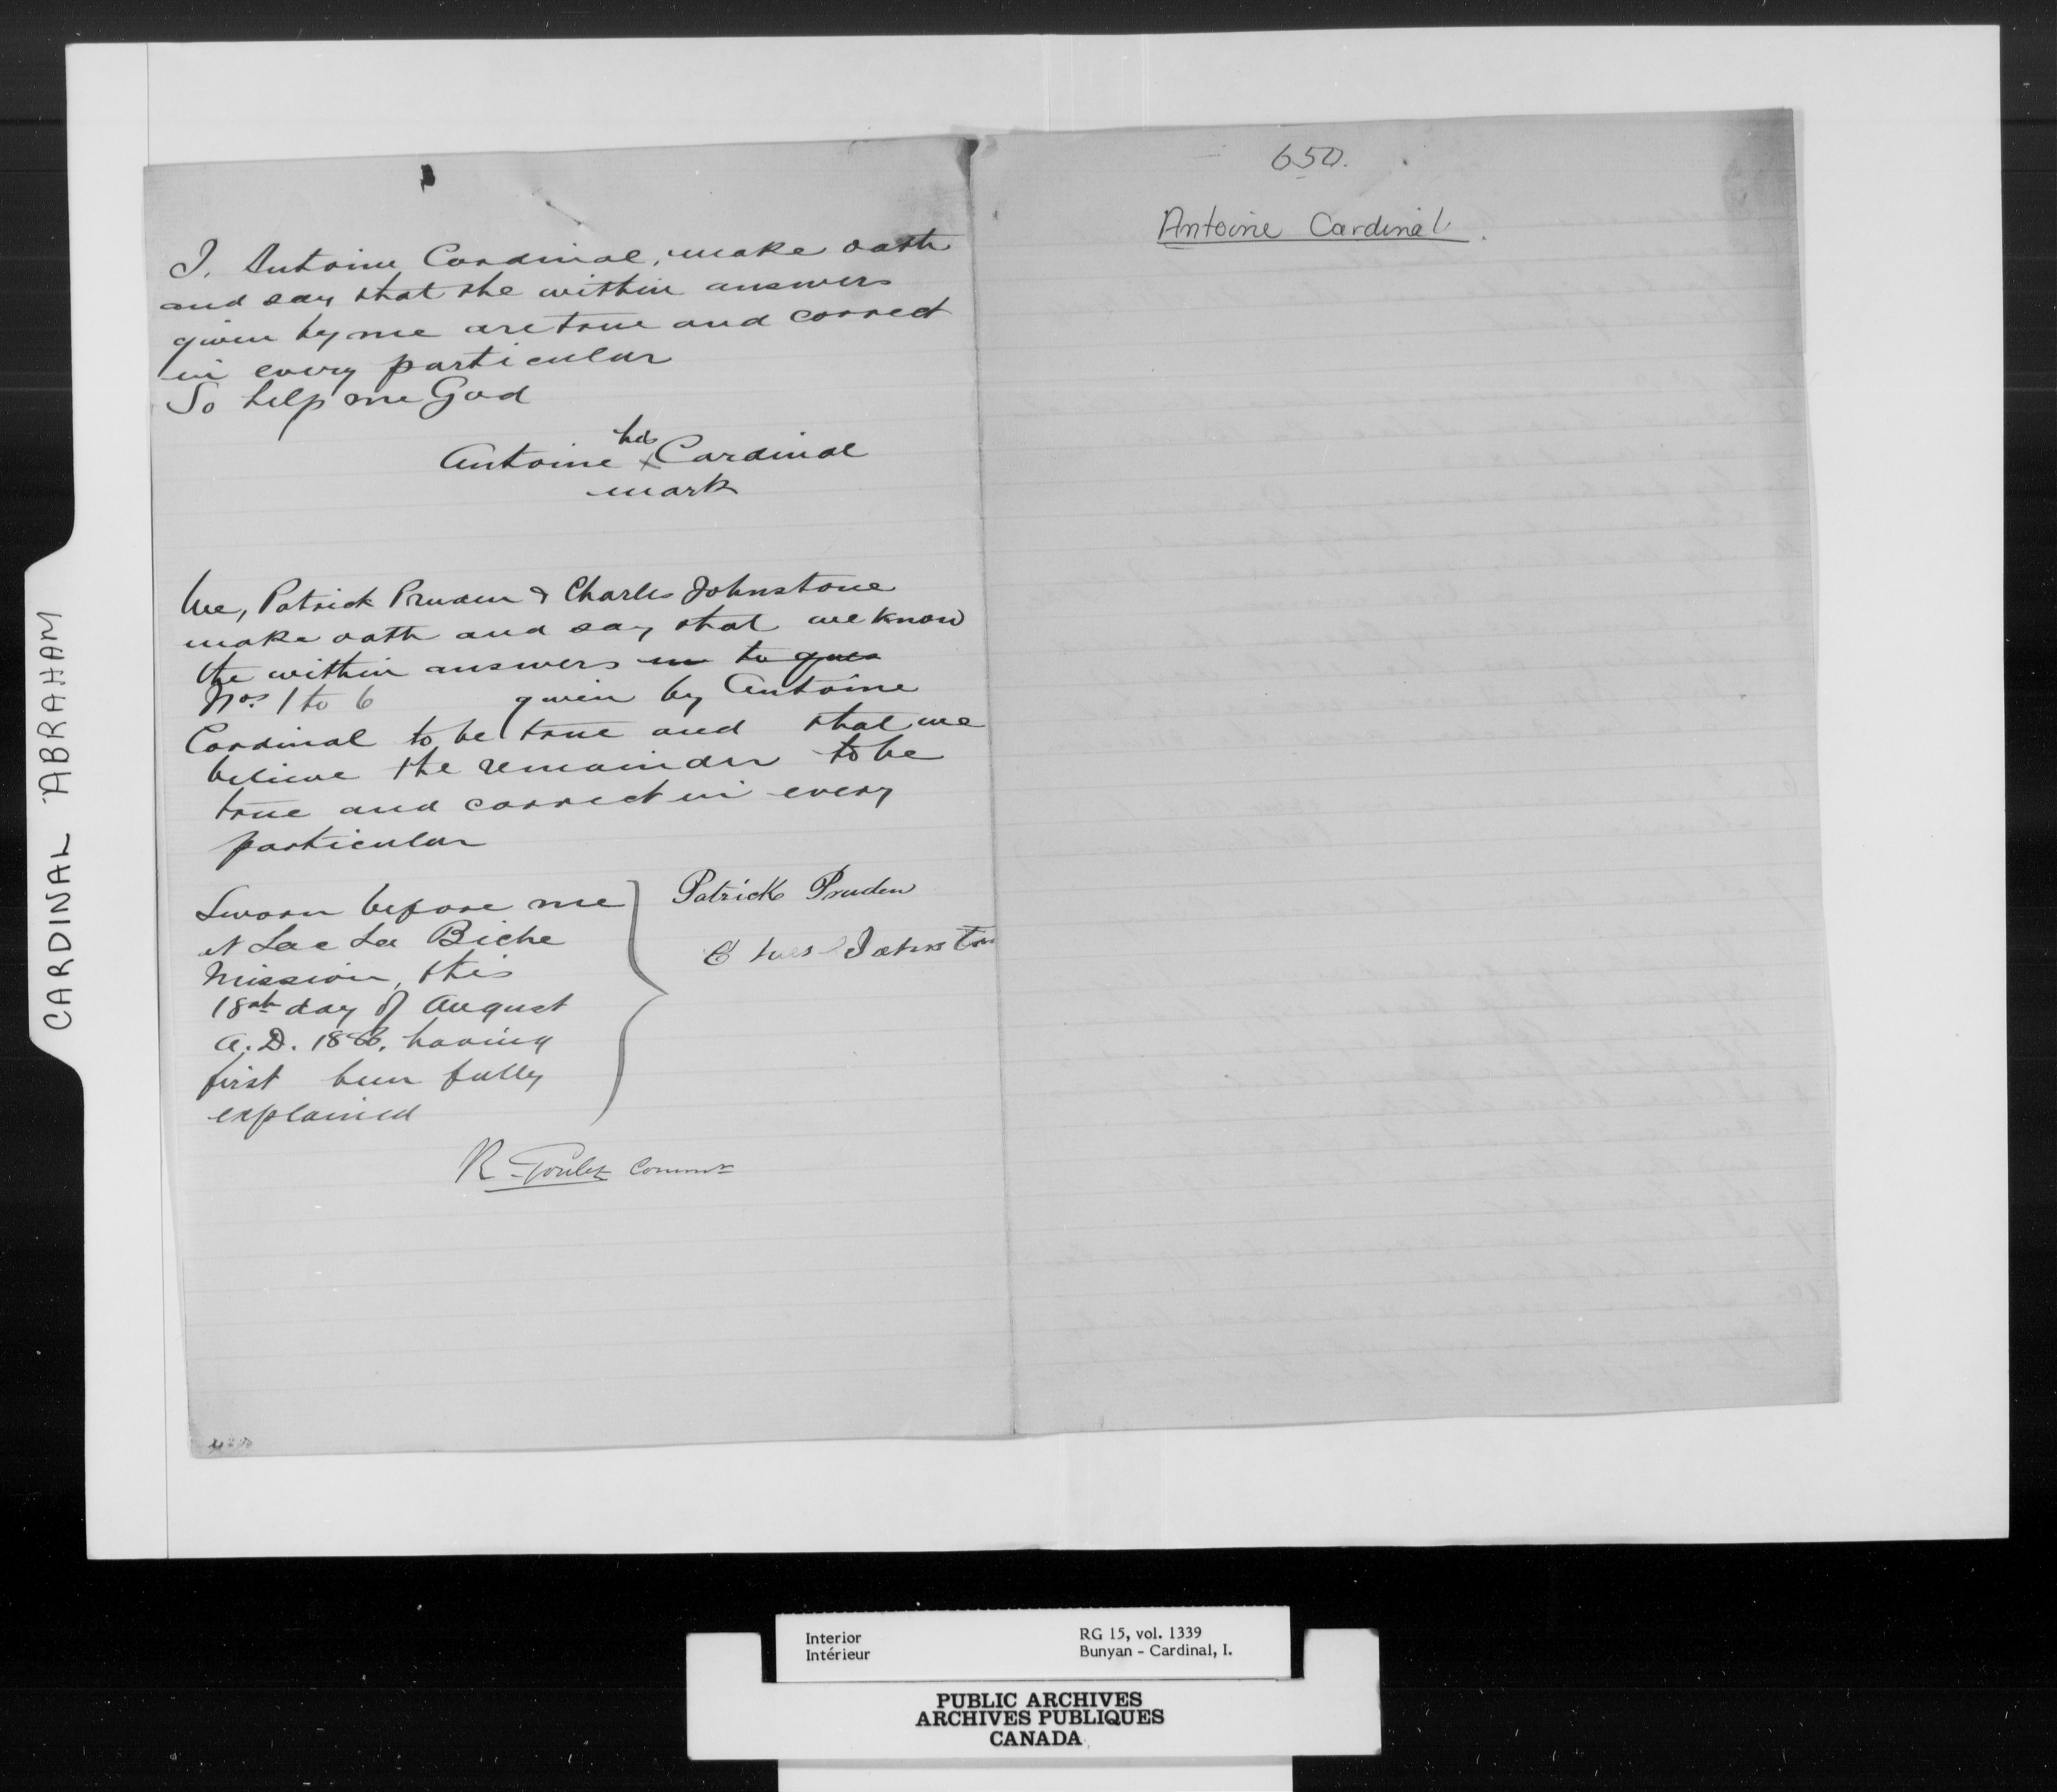 I, Antoine Cardinal, make oath
and say that the within answers
given by me are true and correct
in every particular
So help me God
his
Antoine x Cardinal
mark
We, Patrick Pruden & Charles Johnstone
make oath and say that we know
the within answers in to ques
Nos. 1 to 6 given by Antoine
Cardinal to be true and that we
believe the remainder to be
true and correct in every
particular
Sworn before me
at Lac La Biche
Mission, this
18th day of August
A.D. 1886, having
first been fully
explained
Patrick Pruden
Johnston
R. Goulet Commr
650.
Antoine Cardinal.
CARDINAL ABRAHAM
Interior
Intérieur
RG 15, vol. 1339
Bunyan - Cardinal, I.
PUBLIC ARCHIVES
ARCHIVES PUBLIQUES
CANADA